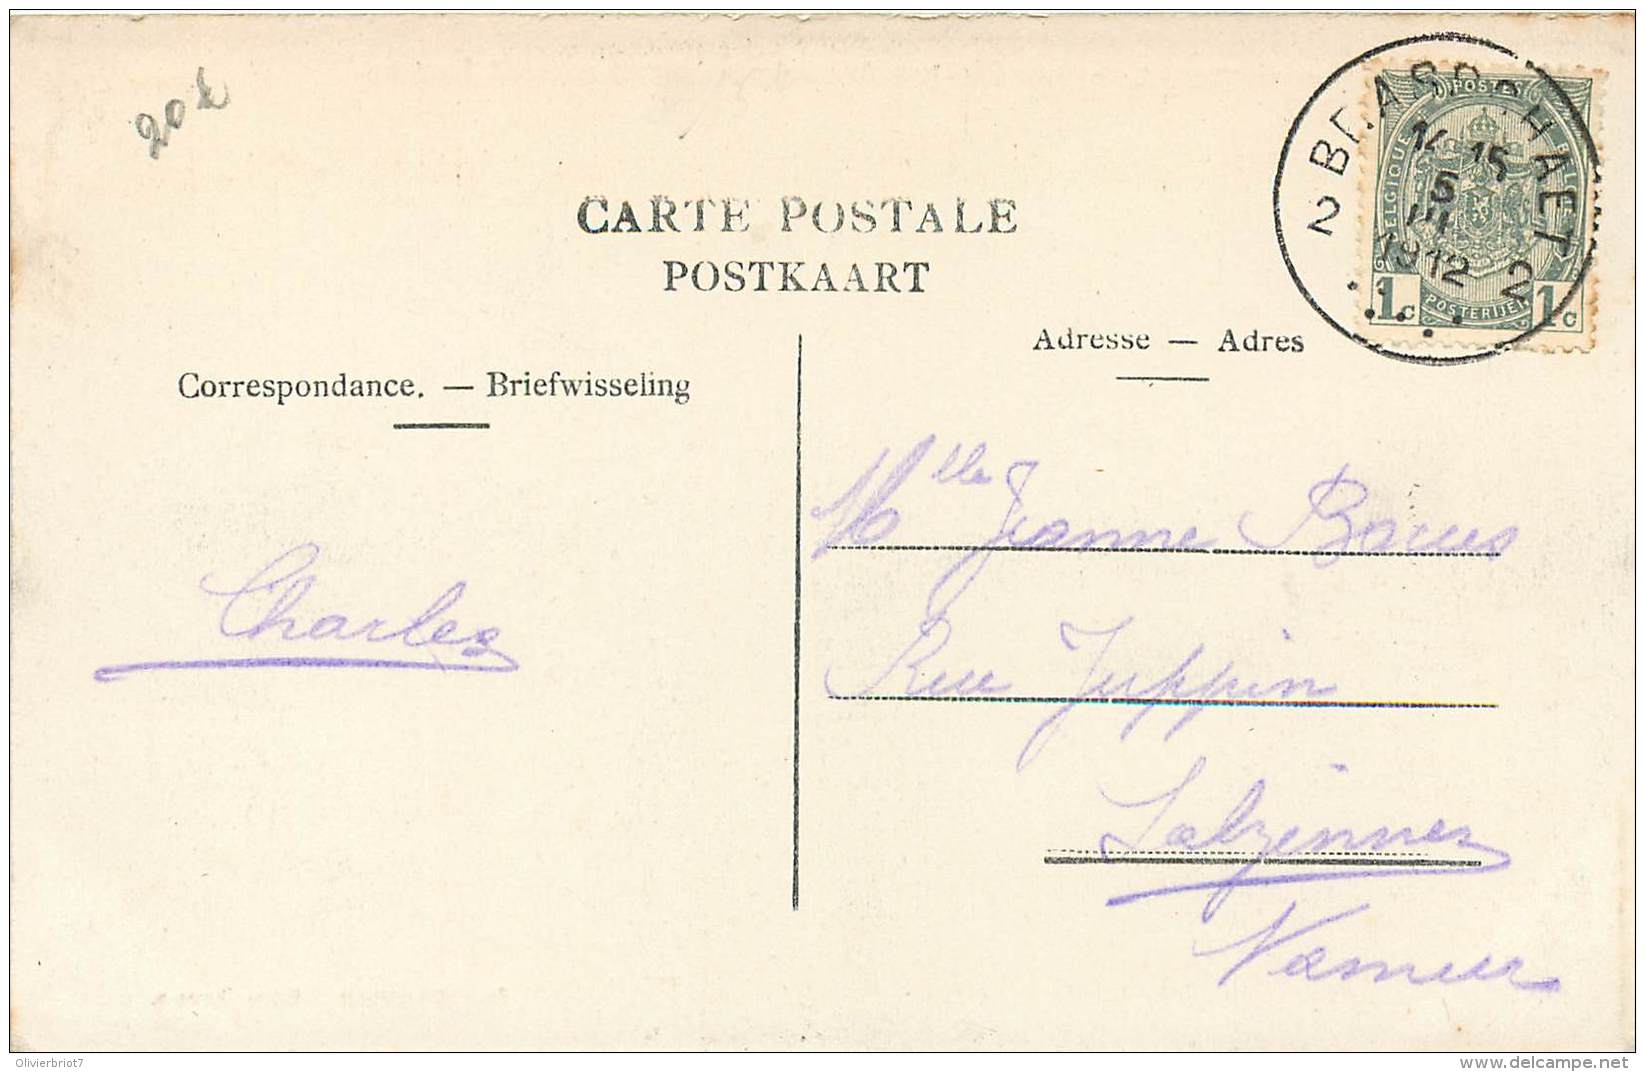 20 £
CARTE POSTALE
POSTKAART
BRASSCHAET
2 2
14 15
5
III
1912
POSTES
BELGIQUE BELGIË
POSTERIJEN
1c 1c
Adresse — Adres
Correspondance. — Briefwisseling
Mlle Jeanne
Charles
Rue Juppin
Salzinnes
Namur
Olivierbriot7
www.delcampe.net